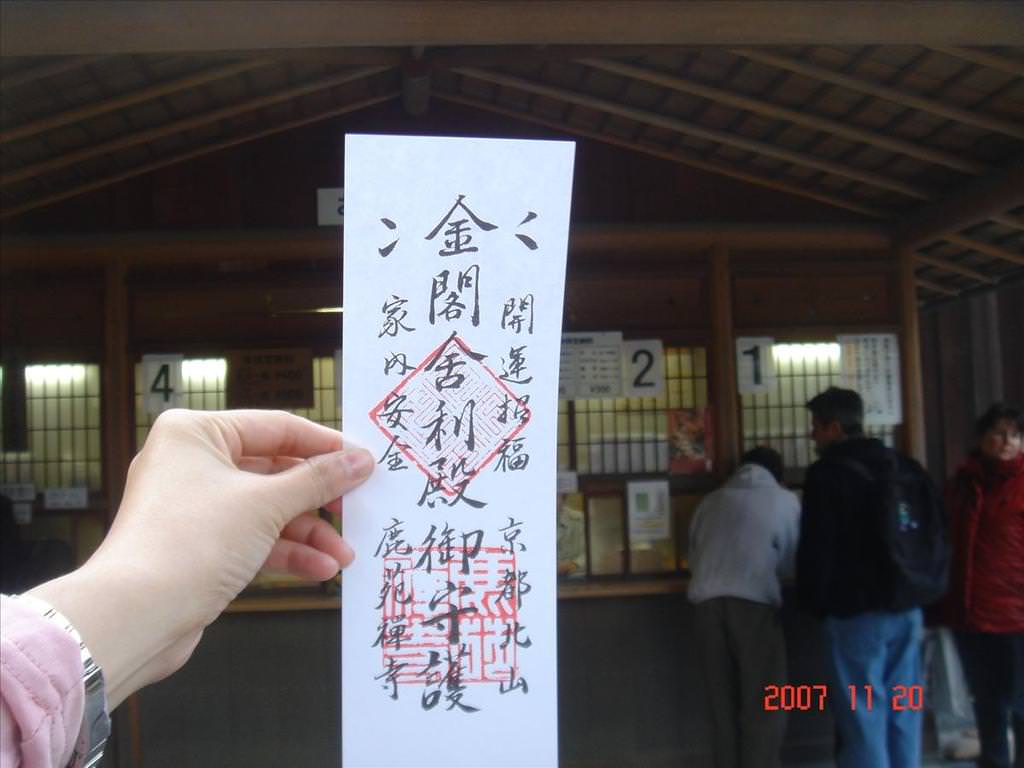 開運招福
京都北山
金閣舍利殿御守護
家内安全
鹿苑禅寺
4
2
1
¥300
2007 11 20